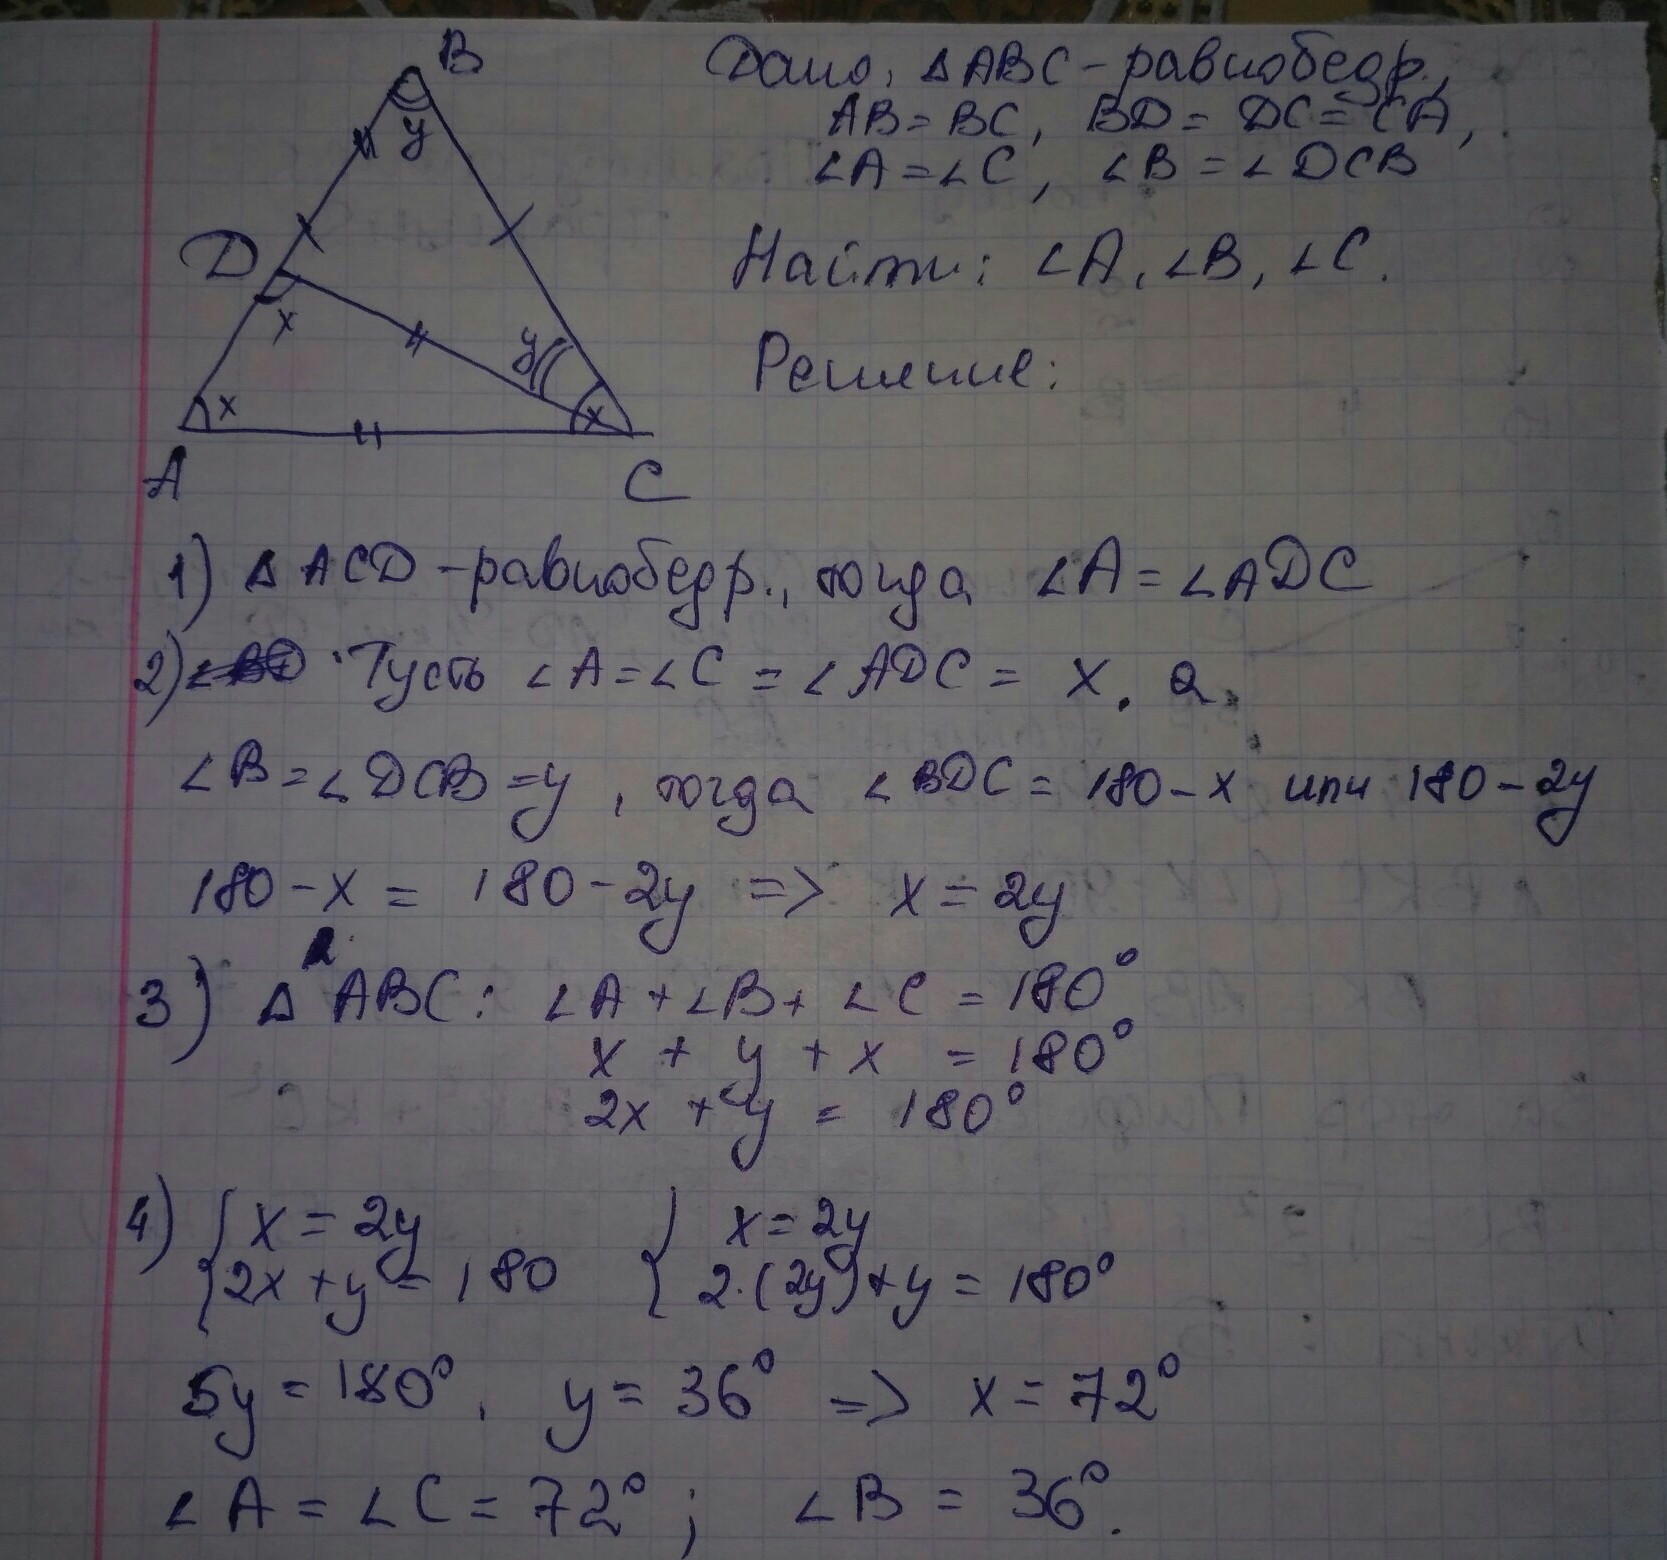 B
y
D
x
y
x
x
A
C
Дано, ΔABC-равнобедр.,
AB=BC, BD=DC=CA,
∠A=∠C, ∠B=∠DCB
Найти: ∠A, ∠B, ∠C.
Решение:
1) ΔACD-равнобедр., тогда ∠A=∠ADC
2) Пусть ∠A=∠C=∠ADC=x. а
∠B=∠DCB=y, тогда ∠BDC=180-x или 180-2y
180-x=180-2y => x=2y
3) ΔABC: ∠A+∠B+∠C=180°
x+y+x=180°
2x+y=180°
4) { x=2y { x=2y
2x+y=180 2·(2y)+y=180°
5y=180°, y=36° => x=72°
∠A=∠C=72°; ∠B=36°.